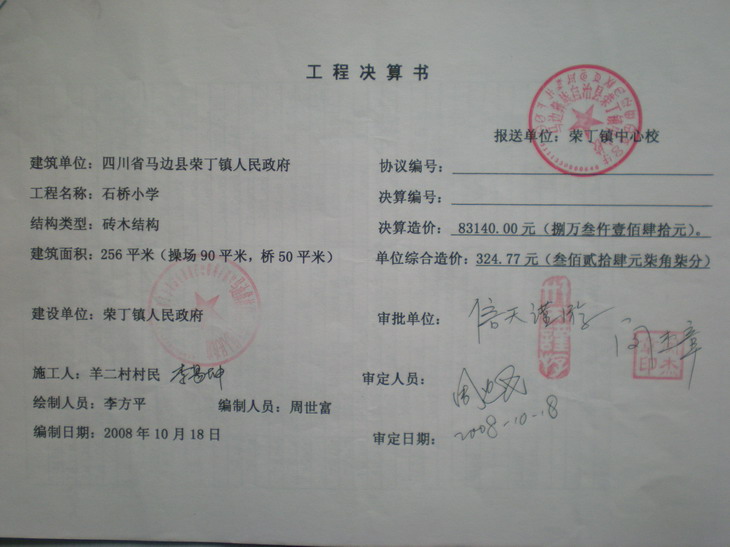 工程决算书
报送单位：荣丁镇中心校
建筑单位：四川省马边县荣丁镇人民政府
协议编号：
工程名称：石桥小学
决算编号：
结构类型：砖木结构
决算造价：83140.00 元（捌万叁仟壹佰肆拾元）。
建筑面积：256 平米（操场 90 平米，桥 50 平米）
单位综合造价：324.77 元（叁佰贰拾肆元柒角柒分）
建设单位：荣丁镇人民政府
审批单位：信天谨游
施工人：羊二村村民
审定人员：
绘制人员：李方平
编制人员：周世富
编制日期：2008 年 10 月 18 日
审定日期：2008-10-18